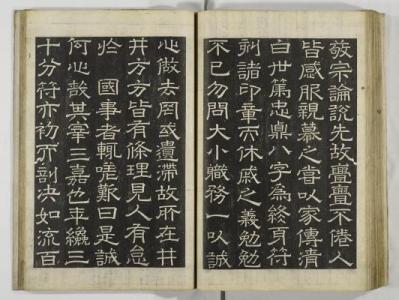 宗論說先故亹亹不倦人
皆感服親慕之嘗以家傳淸
白世篤忠貞八字爲終身符
刻諸印章而休戚之義勉勉
不已勿問大小職務一以誠
心做去罔或遺滯故所在井
井方方皆有條理見人有怠
於 國事者輒嗟歎曰是誠
何心哉其宰三嘉也年纔三
十分符亦初而剖決如流百